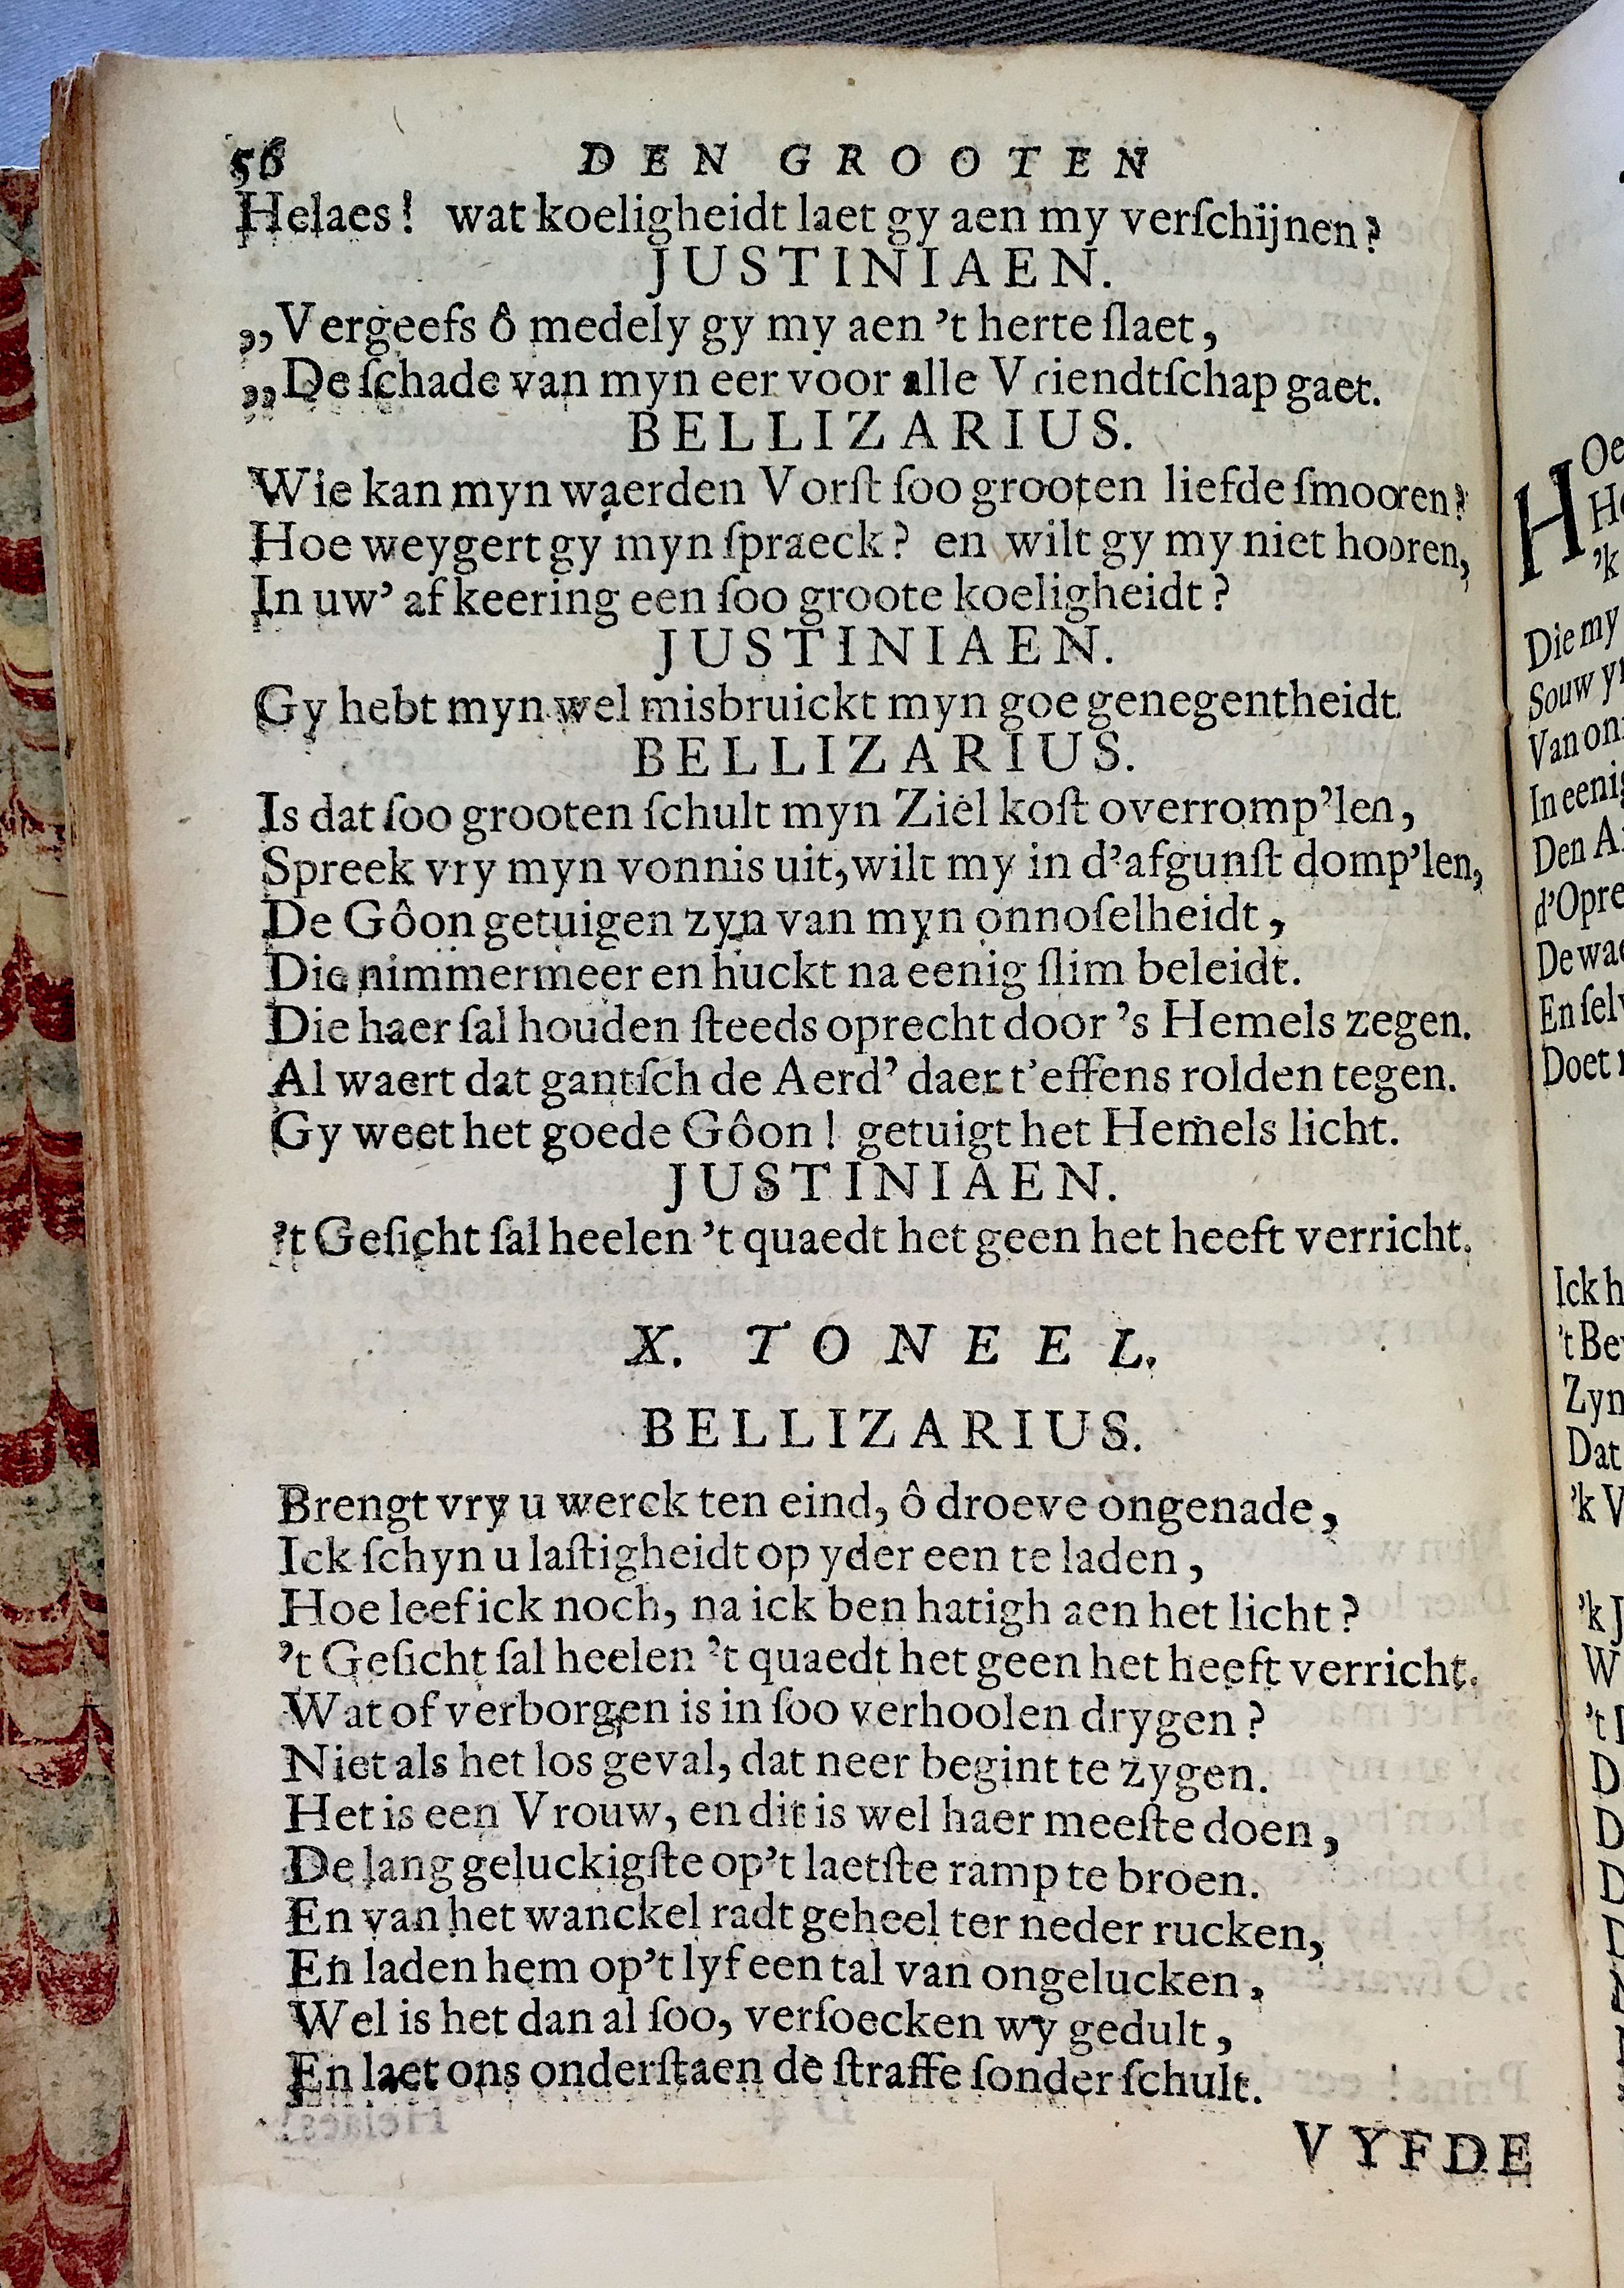 56 DEN GROOTEN
Helaes! wat koeligheidt laet gy aen my verſchijnen?
JUSTINIAEN.
„Vergeefs ô medely gy my aen 't herte ſlaet,
„De ſchade van myn eer voor alle Vriendtſchap gaet.
BELLIZARIUS.
Wie kan myn waerden Vorſt ſoo grooten liefde ſmooren?
Hoe weygert gy myn ſpraeck? en wilt gy my niet hooren,
In uw' af keering een ſoo groote koeligheidt?
JUSTINIAEN.
Gy hebt myn wel misbruickt myn goe genegentheidt.
BELLIZARIUS.
Is dat ſoo grooten ſchult myn Ziel koſt overromp'len,
Spreek vry myn vonnis uit, wilt my in d'afgunſt domp'len,
De Gôon getuigen zyn van myn onnoſelheidt,
Die nimmermeer en huckt na eenig ſlim beleidt.
Die haer ſal houden ſteeds oprecht door 's Hemels zegen.
Al waert dat gantſch de Aerd' daer t'effens rolden tegen.
Gy weet het goede Gôon! getuigt het Hemels licht.
JUSTINIAEN.
't Geſicht ſal heelen 't quaedt het geen het heeft verricht.
X. TONEEL.
BELLIZARIUS.
Brengt vry u werck ten eind, ô droeve ongenade,
Ick ſchyn u laſtigheidt op yder een te laden,
Hoe leef ick noch, na ick ben hatigh aen het licht?
't Geſicht ſal heelen 't quaedt het geen het heeft verricht.
Wat of verborgen is in ſoo verhoolen drygen?
Niet als het los geval, dat neer begint te zygen.
Het is een Vrouw, en dit is wel haer meeſte doen,
De lang geluckigſte op't laetſte ramp te broen.
En van het wanckel radt geheel ter neder rucken,
En laden hem op't lyf een tal van ongelucken,
Wel is het dan al ſoo, verſoecken wy gedult,
En laet ons onderſtaen de ſtraffe ſonder ſchult.
VYFDE
H Oe
'k
Die my
Souw
Van
In
Den
De
En
Doet
Ick
't
Zyn
Dat
'k
'k